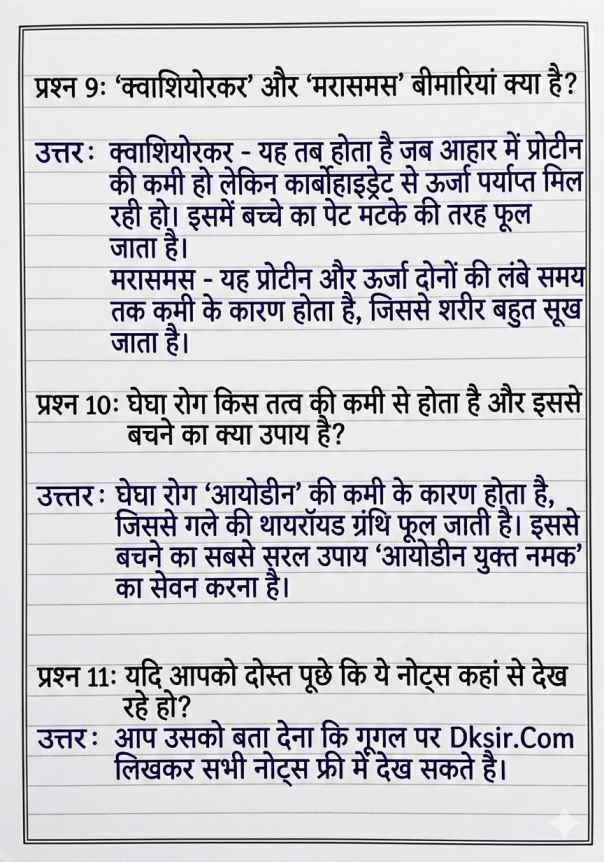 प्रश्न 9: ‘क्वाशियोरकर’ और ‘मरासमस’ बीमारियां क्या है?
उत्तर: क्वाशियोरकर - यह तब होता है जब आहार में प्रोटीन
की कमी हो लेकिन कार्बोहाइड्रेट से ऊर्जा पर्याप्त मिल
रही हो। इसमें बच्चे का पेट मटके की तरह फूल
जाता है।
मरासमस - यह प्रोटीन और ऊर्जा दोनों की लंबे समय
तक कमी के कारण होता है, जिससे शरीर बहुत सूख
जाता है।
प्रश्न 10: घेघा रोग किस तत्व की कमी से होता है और इससे
बचने का क्या उपाय है?
उत्त्तर: घेघा रोग ‘आयोडीन’ की कमी के कारण होता है,
जिससे गले की थायरॉयड ग्रंथि फूल जाती है। इससे
बचने का सबसे सरल उपाय ‘आयोडीन युक्त नमक’
का सेवन करना है।
प्रश्न 11: यदि आपको दोस्त पूछे कि ये नोट्स कहां से देख
रहे हो?
उत्तर: आप उसको बता देना कि गूगल पर Dksir.Com
लिखकर सभी नोट्स फ्री में देख सकते है।